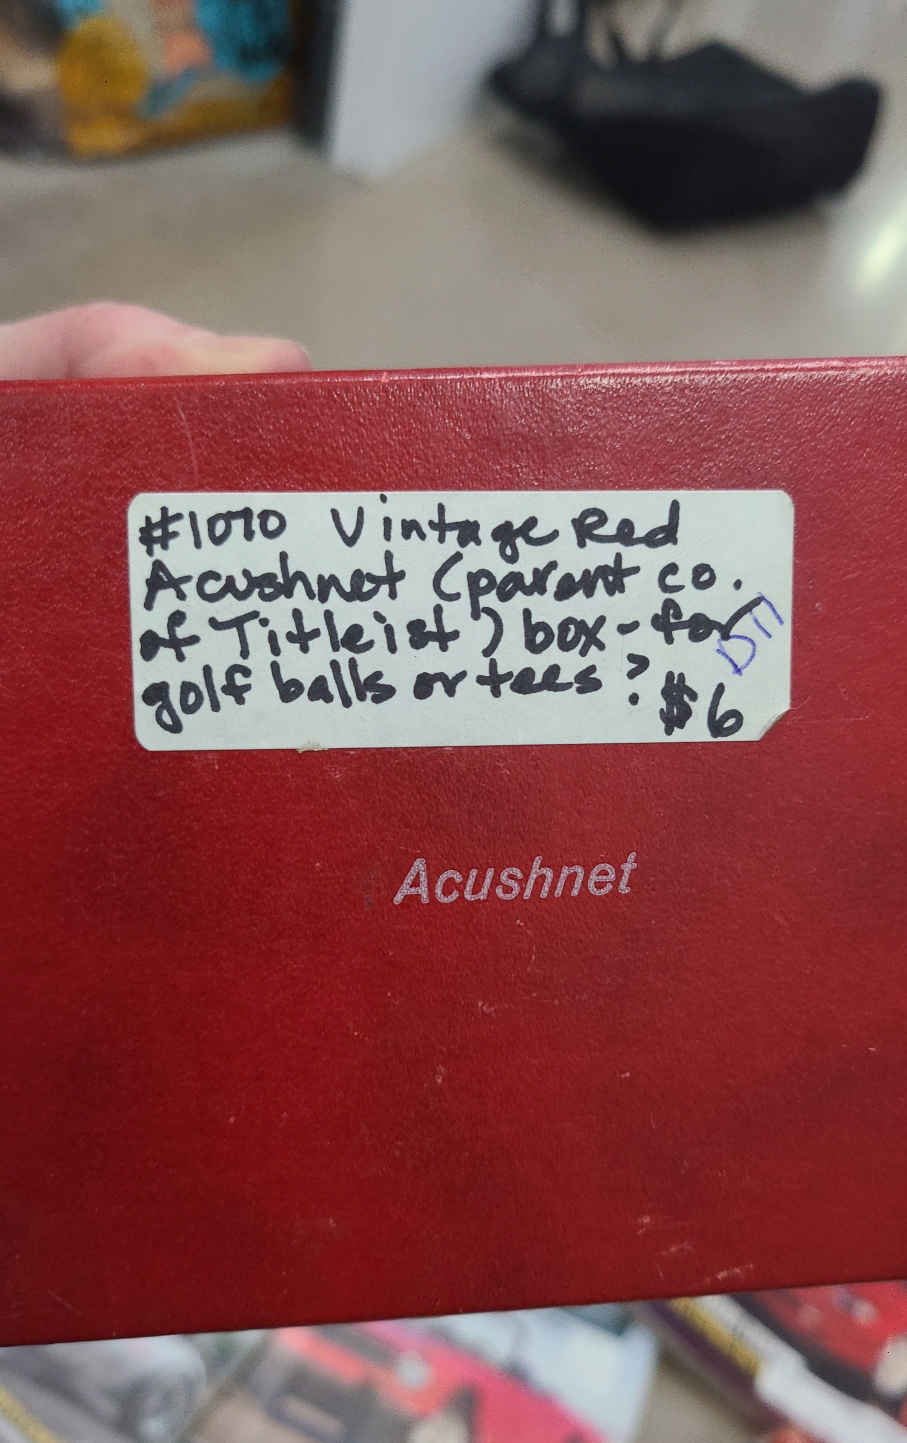 #1070 Vintage Red
Acushnet (parent co.
of Titleist) box - for
golf balls or tees? $6
Acushnet